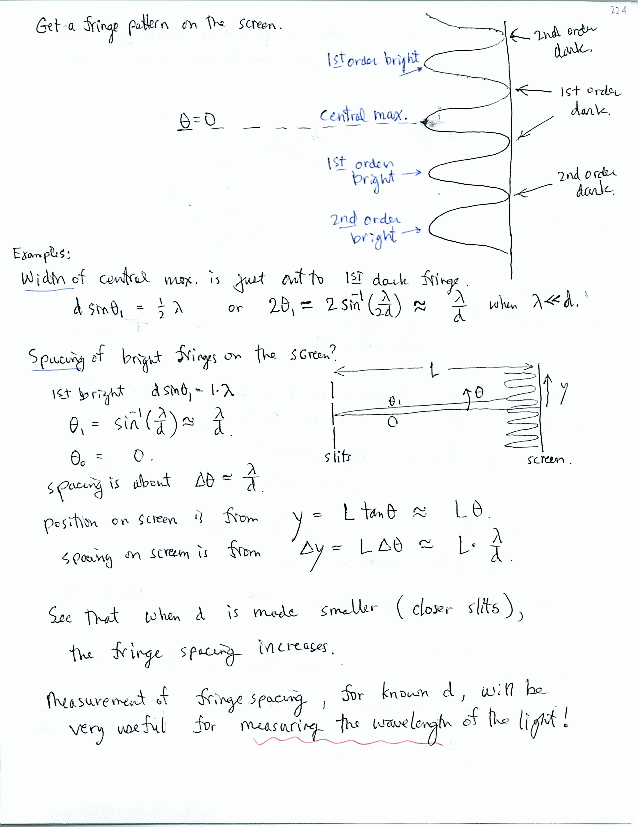 224
Get a fringe pattern on the screen.
2nd order
dark.
1st order bright
1st order
dark.
θ=0
central max.
1st order
bright
2nd order
dark.
2nd order
bright
Examples:
Width of central max. is just out to 1st dark fringe.
d sinθ₁ = ½ λ or 2θ₁ = 2 sin⁻¹(λ/2d) ≈ λ/d when λ≪d.
Spacing of bright fringes on the screen?
1st bright d sinθ₁ = 1·λ
θ₁ = sin⁻¹(λ/d) ≈ λ/d.
θ₀ = 0.
spacing is about Δθ = λ/d.
L
θ₁
θ
0
y
slits
screen.
position on screen is from y = L tanθ ≈ Lθ.
spacing on screen is from Δy = LΔθ ≈ L· λ/d.
See that when d is made smaller (closer slits),
the fringe spacing increases.
Measurement of fringe spacing, for known d, will be
very useful for measuring the wavelength of the light!